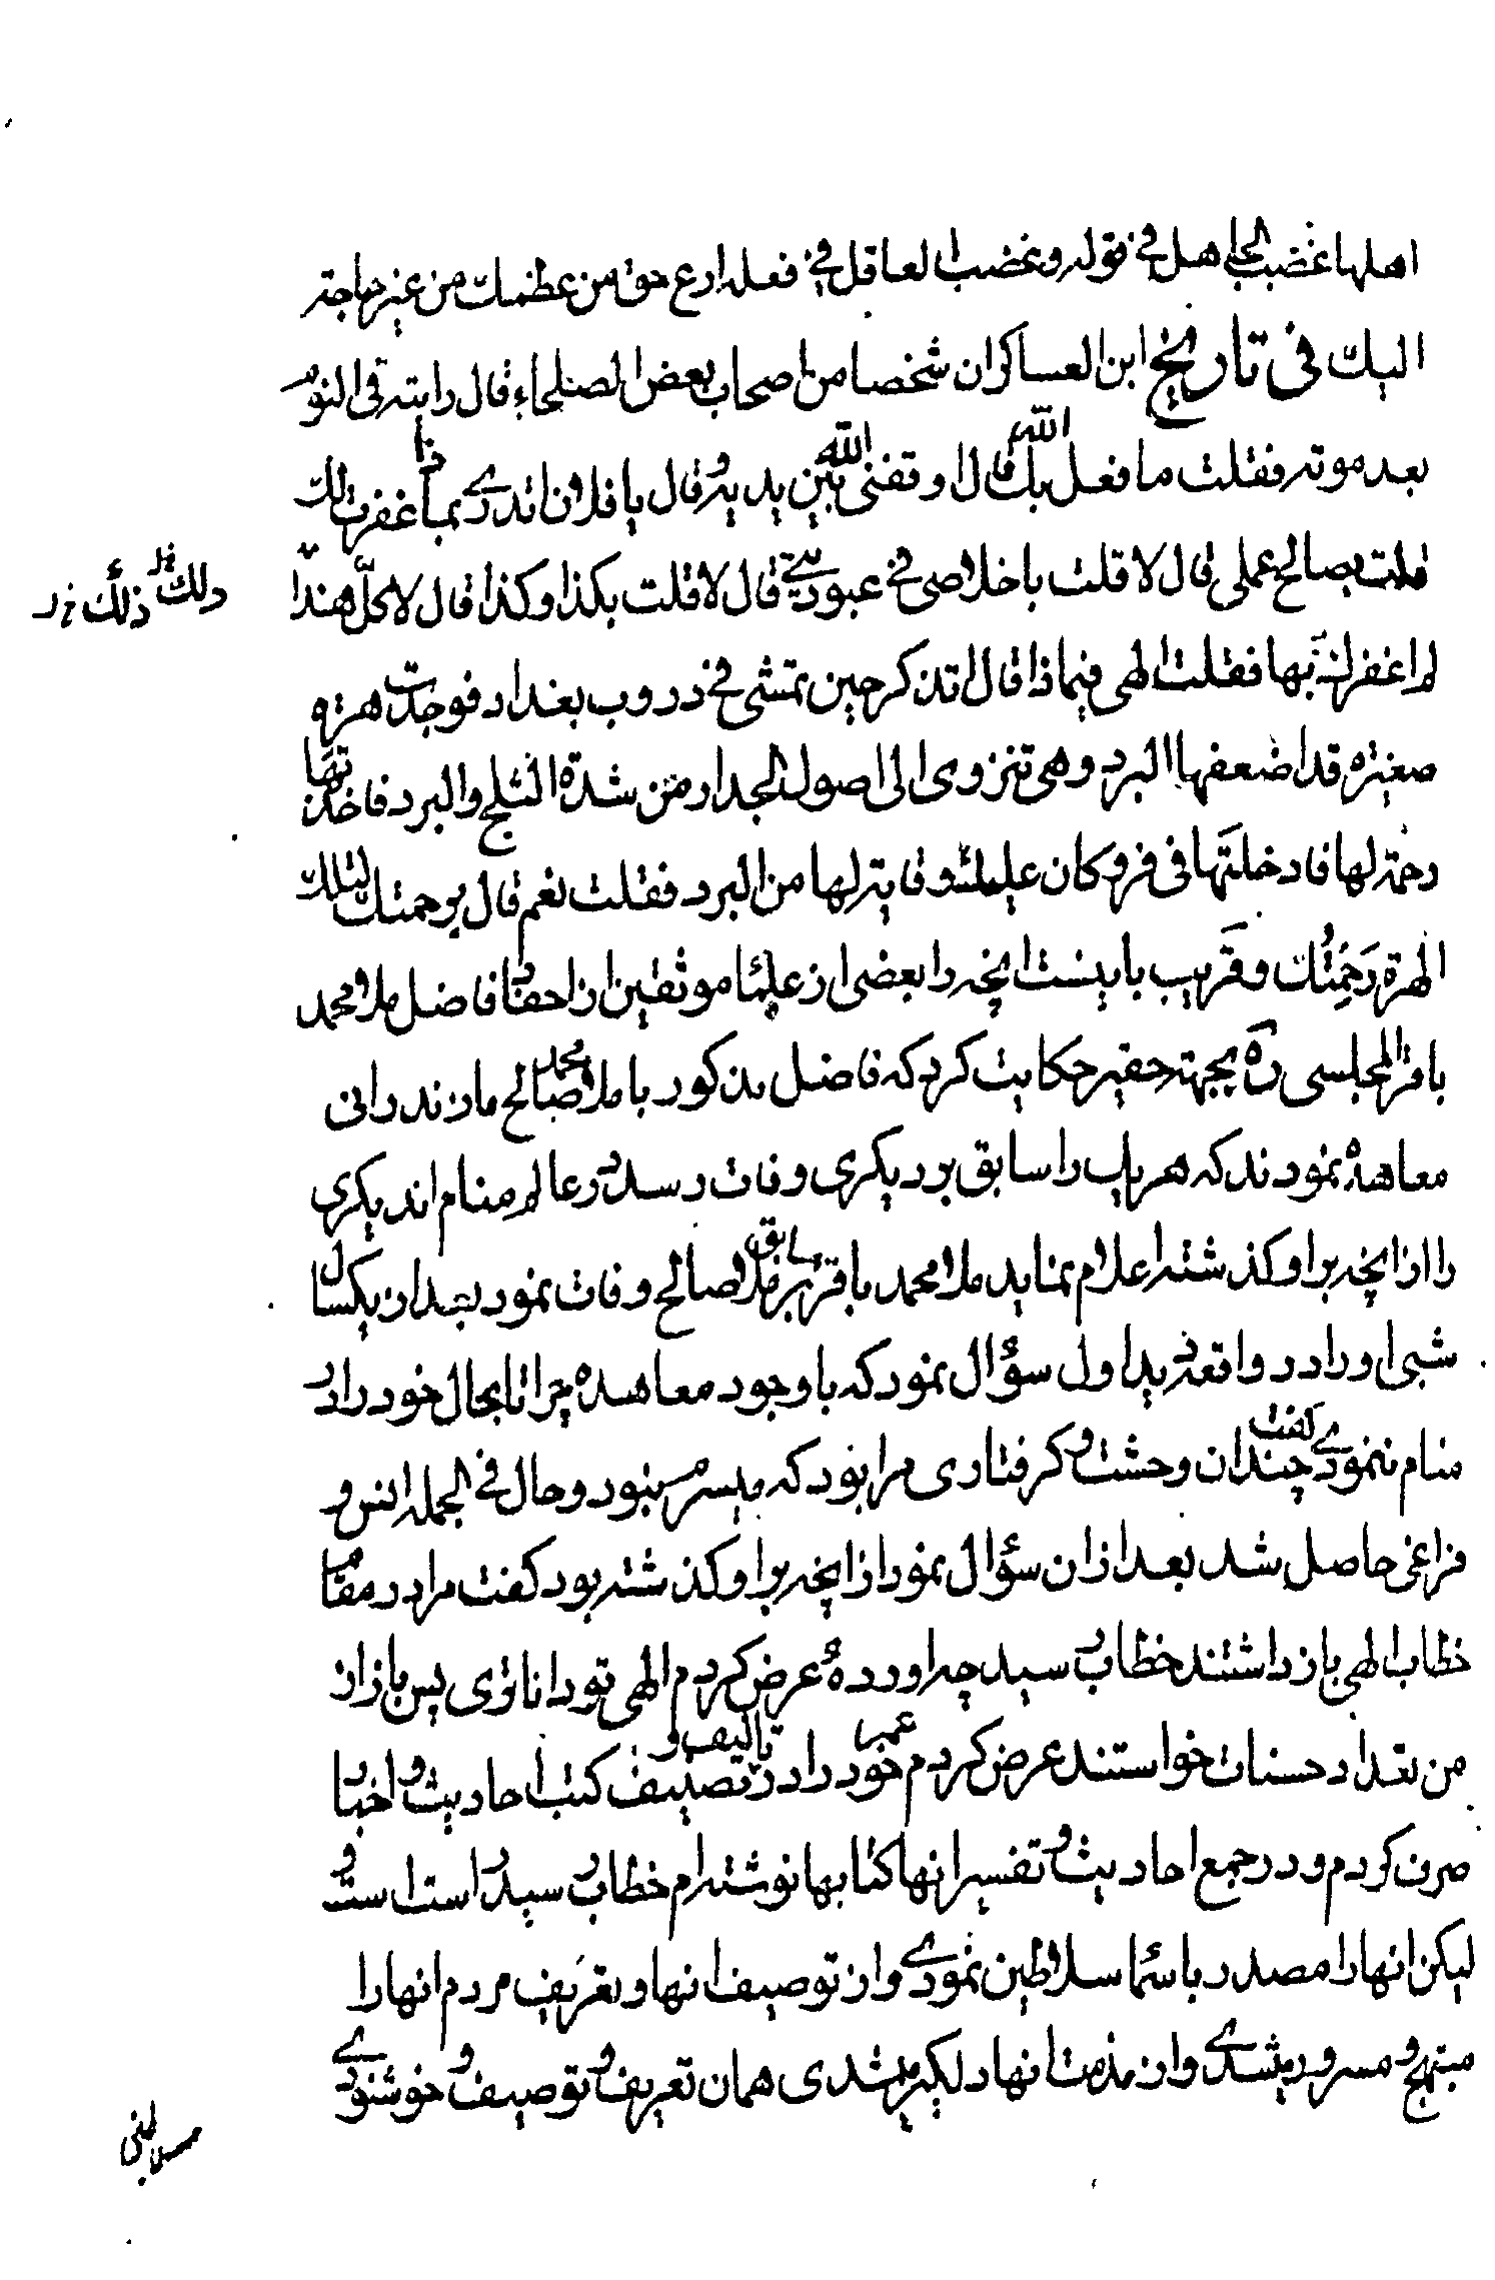 اهلها غضب الجاهل فی قوله و غضب العاقل فی فعله ارع حق من عظمک من غیر حاجة
الیک فی تاریخ ابن العساکر ان شخصا من اصحاب بعض الصلحاء قال رایته فی النوم
بعد موته فقلت ما فعل الله بک قال اوقفنی الله بین یدیه و قال یا فلان اتدری بماذا غفرت لک
قلت بصالح عملی قال لا قلت باخلاصی فی عبودیتی قال لا قلت بکذا و کذا قال لا کل هذا
ذلک
لم اغفر لک بها فقلت الهی فبماذا قال اتذکر حین تمشی فی دروب بغداد فوجدت هرة
صغیرة قد اضعفها البرد و هی تنزوی الی اصول الجدار من شدة الثلج و البرد فاخذتها
رحمة لها فادخلتها فی فرو کان علیک وقایة لها من البرد فقلت نعم قال برحمتک لتلک
الهرة رحمتک و قریب باینست انچه را بعضی از علما موثقین از احفاد فاضل ملا محمد
باقر المجلسی ره بجهة حقیر حکایت کرد که فاضل مذکور با ملا محمد صالح مازندرانی
معاهده نمودند که هر یک را سابق بر دیگری وفات رسد در عالم منام ان دیگری
را از انچه بر او گذشته اعلام نماید ملا محمد باقر سابق بر ملا صالح وفات نمود بعد از یکسال
شبی او را در واقعه دید اول سؤال نمود که با وجود معاهده چرا تا بحال خود را در
منام ننمودی گفت چندان وحشت و گرفتاری مرا بود که میسرم نبود و حال فی الجمله انس و
فراغی حاصل شد بعد از ان سؤال نمود از انچه بر او گذشته بود گفت مرا در مقام
خطاب الهی باز داشتند خطاب رسید چه اوردهٔ عرض کردم الهی تو داناتری پس باز از
من تعداد حسنات خواستند عرض کردم عمر خود را در تالیف و تصنیف کتب احادیث و اخبار
صرف کردم و در جمع احادیث و تفسیر انها کتابها نوشته ام خطاب رسید راست است و
لیکن انها را مصدر باسما سلاطین نمودی و از توصیف انها و تعریف مردم انها را
مبتهج و مسرور میشدی و از مذمت انها دلگیر میشدی همان تعریف و توصیف و خوشنودی